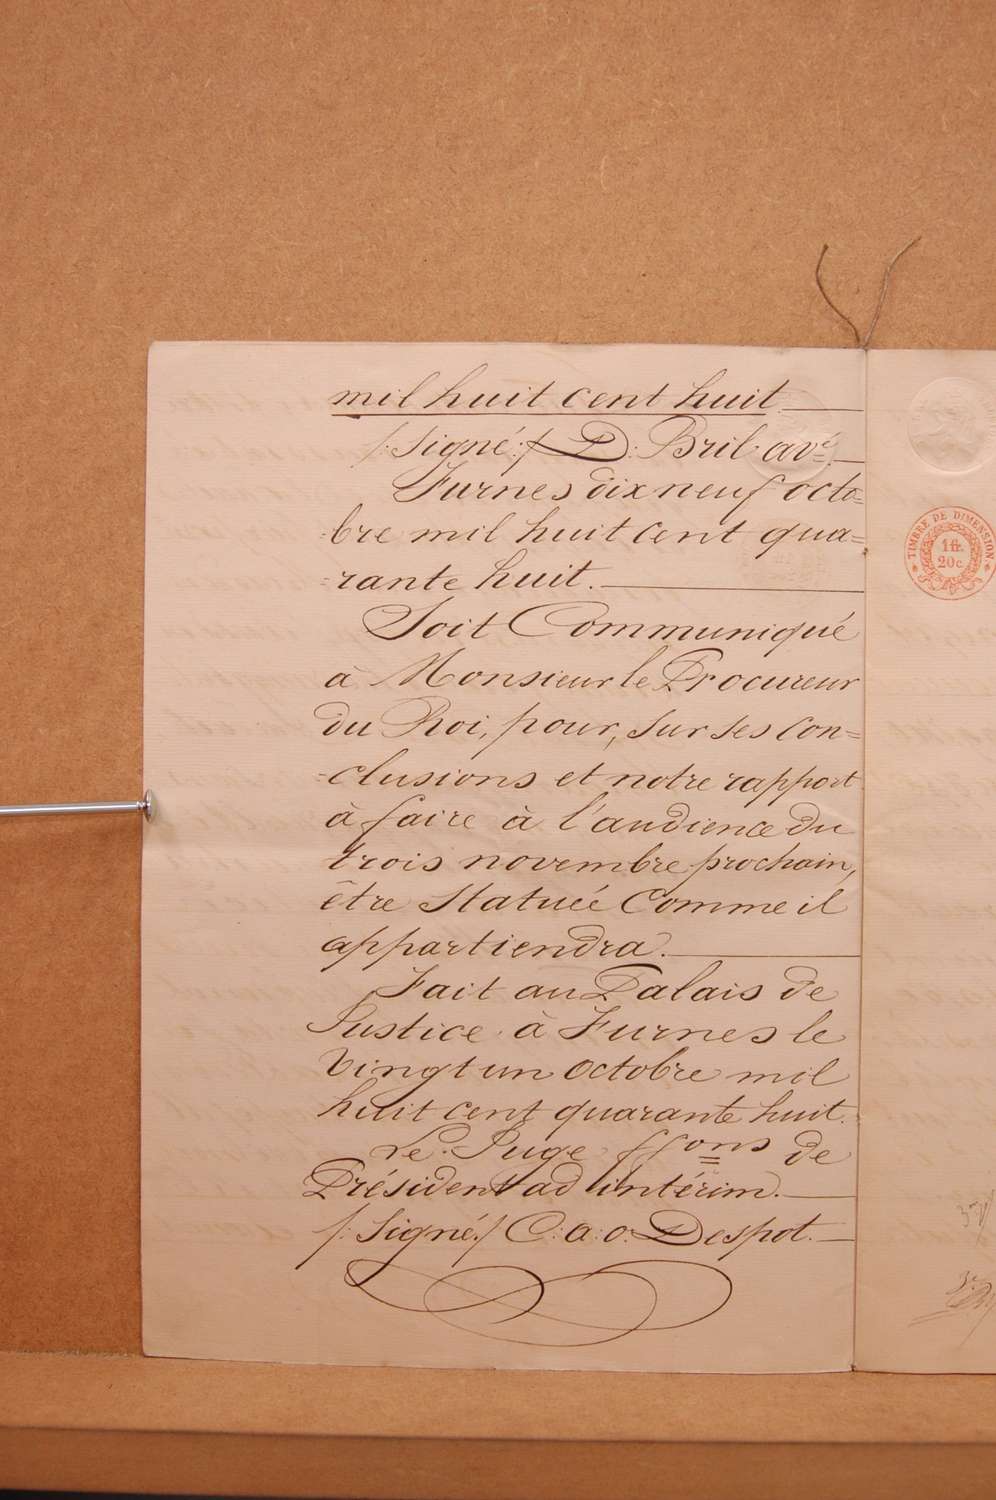 mil huit cent huit
/: Signé :/ D: Bril avé
Furnes dix neuf octo=
bre mil huit cent qua=
=rante huit.
Soit Communiqué
à Monsieur le Procureur
du Roi, pour, sur ses con=
=clusions et notre rapport
à faire à l'audience du
trois novembre prochain,
être Statuée Comme il
appartiendra.
Fait au Palais de
Justice à Furnes le
Vingt un octobre mil
huit cent quarante huit.
Le Juge ffons de
Président ad intérim.
/: Signé :/ C: a: o: Despot.
TIMBRE DE DIMENSION
1 fr.
20 c.